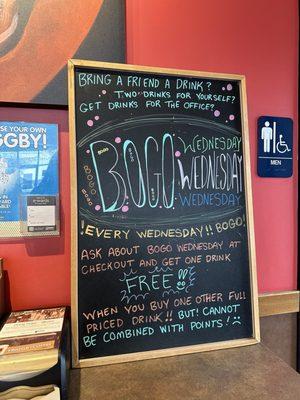 BRING A FRIEND A DRINK?
TWO DRINKS FOR YOURSELF?
GET DRINKS FOR THE OFFICE?
BOGO
BOGO
BOGO
BOGO
WEDNESDAY
WEDNESDAY
WEDNESDAY
!EVERY WEDNESDAY!! BOGO!
ASK ABOUT BOGO WEDNESDAY AT
CHECKOUT AND GET ONE DRINK
FREE!!
WHEN YOU BUY ONE OTHER FULL
PRICED DRINK!! BUT! CANNOT
BE COMBINED WITH POINTS! :(
SE YOUR OWN
GGBY!